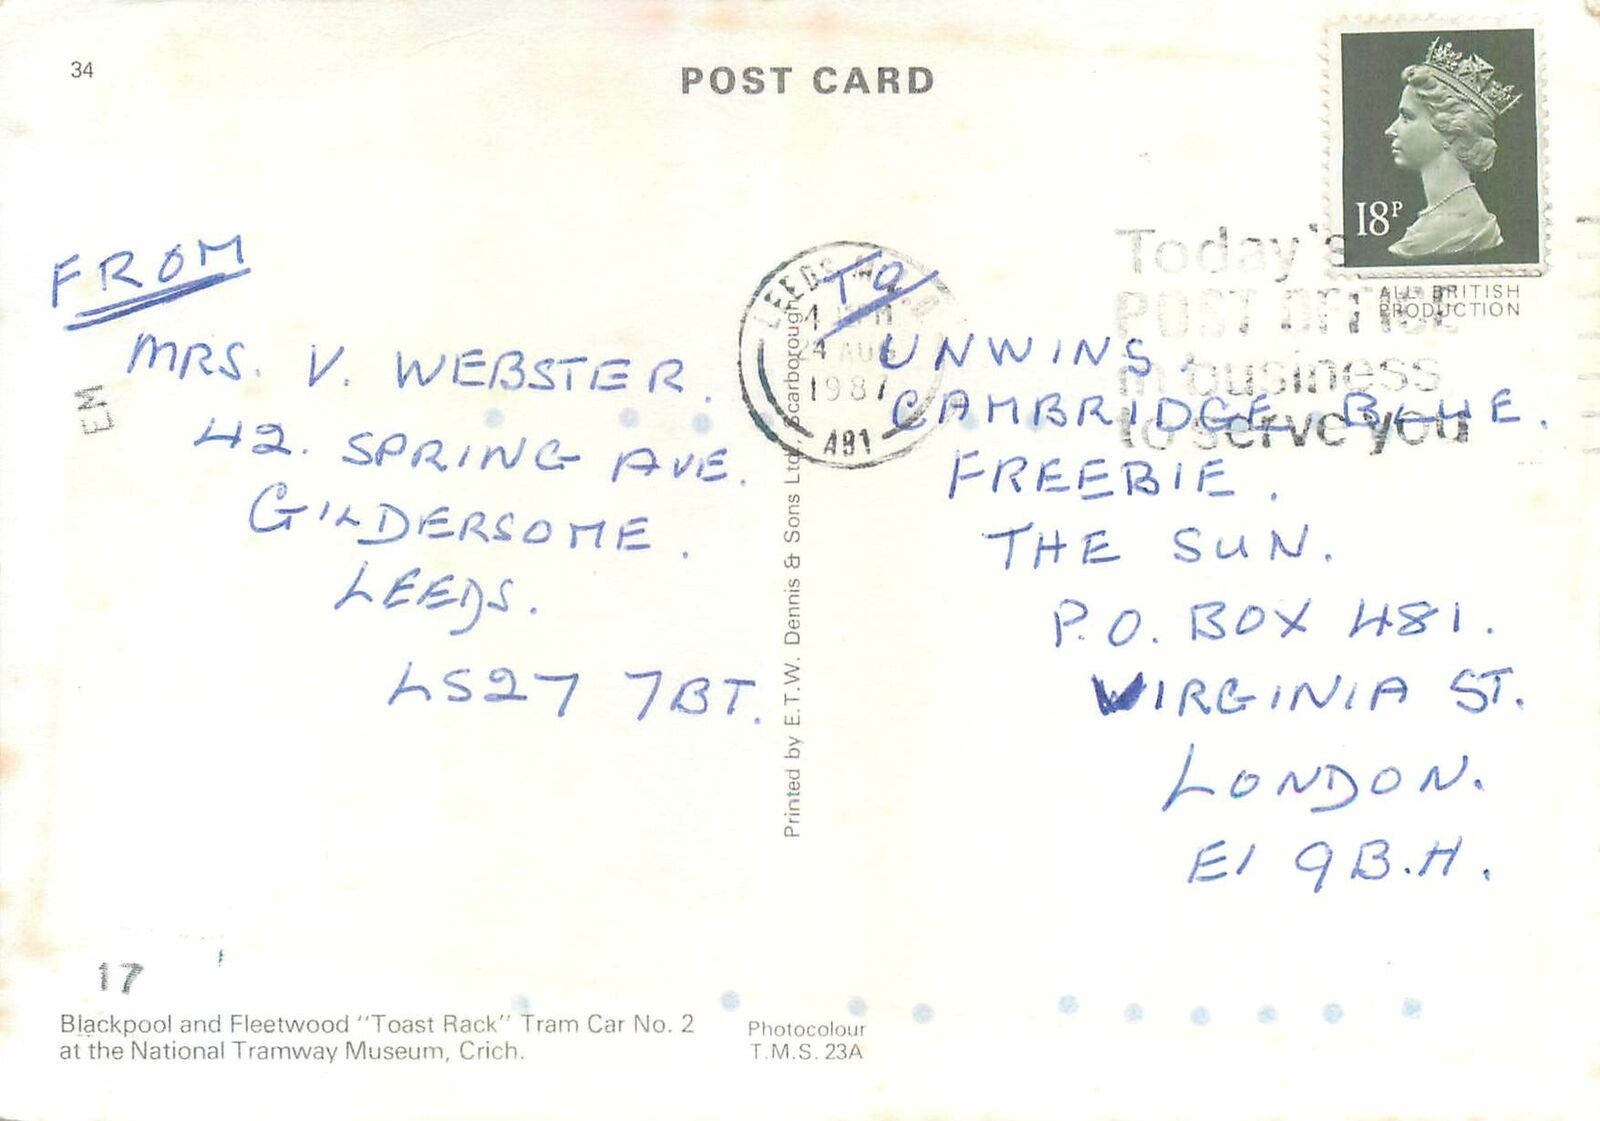 34
POST CARD
18P
ALL BRITISH
PRODUCTION
Today's
POST OFFICE
in business
to serve you
LEEDS
PM
24 AUG
1987
A91
FROM
MRS. V. WEBSTER.
42. SPRING AVE.
GILDERSOME.
LEEDS.
LS27 7BT.
EM
Printed by E.T.W. Dennis & Sons Ltd., Scarborough
TO
UNWINS.
CAMBRIDGE BLUE.
FREEBIE.
THE SUN.
P.O. BOX 481.
VIRGINIA ST.
LONDON.
E1 9B.H.
17
Blackpool and Fleetwood "Toast Rack" Tram Car No. 2
at the National Tramway Museum, Crich.
Photocolour
T.M.S. 23A